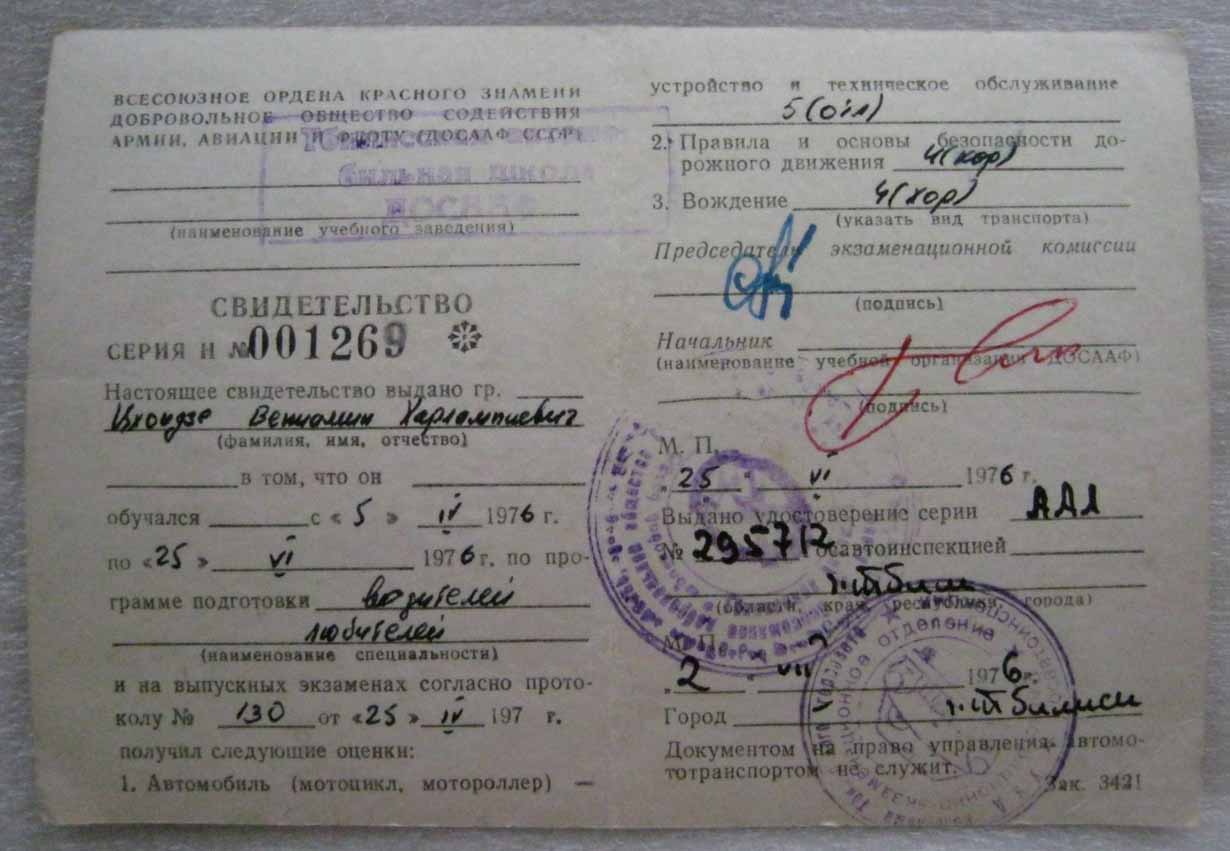 ВСЕСОЮЗНОЕ ОРДЕНА КРАСНОГО ЗНАМЕНИ
ДОБРОВОЛЬНОЕ ОБЩЕСТВО СОДЕЙСТВИЯ
АРМИИ, АВИАЦИИ И ФЛОТУ (ДОСААФ СССР)
Тбилисская автомо-
бильная школа
ДОСААФ
(наименование учебного заведения)
СВИДЕТЕЛЬСТВО
СЕРИЯ Н №001269
Настоящее свидетельство выдано гр.
Вениамин Харлампиевич
(фамилия, имя, отчество)
в том, что он
обучался с «5» IV 1976 г.
по «25» VI 1976 г. по про-
грамме подготовки водителей
любителей
(наименование специальности)
и на выпускных экзаменах согласно прото-
колу № 130 от «25» IV 197 г.
получил следующие оценки:
1. Автомобиль (мотоцикл, мотороллер) —
устройство и техническое обслуживание
5 (отл)
2. Правила и основы безопасности до-
рожного движения 4 (хор)
3. Вождение 4 (хор)
(указать вид транспорта)
Председатель экзаменационной комиссии
(подпись)
Начальник
(наименование учебной организации ДОСААФ)
(подпись)
М. П.
„25“ VI 1976 г.
Выдано удостоверение серии АДЛ
№ 295712 Госавтоинспекцией
г. Тбилиси
(области, края, республики, города)
М. П.
„2“ VII 1976 г.
Город г. Тбилиси
Документом на право управления автомо-
тотранспортом не служит.
Зак. 3421